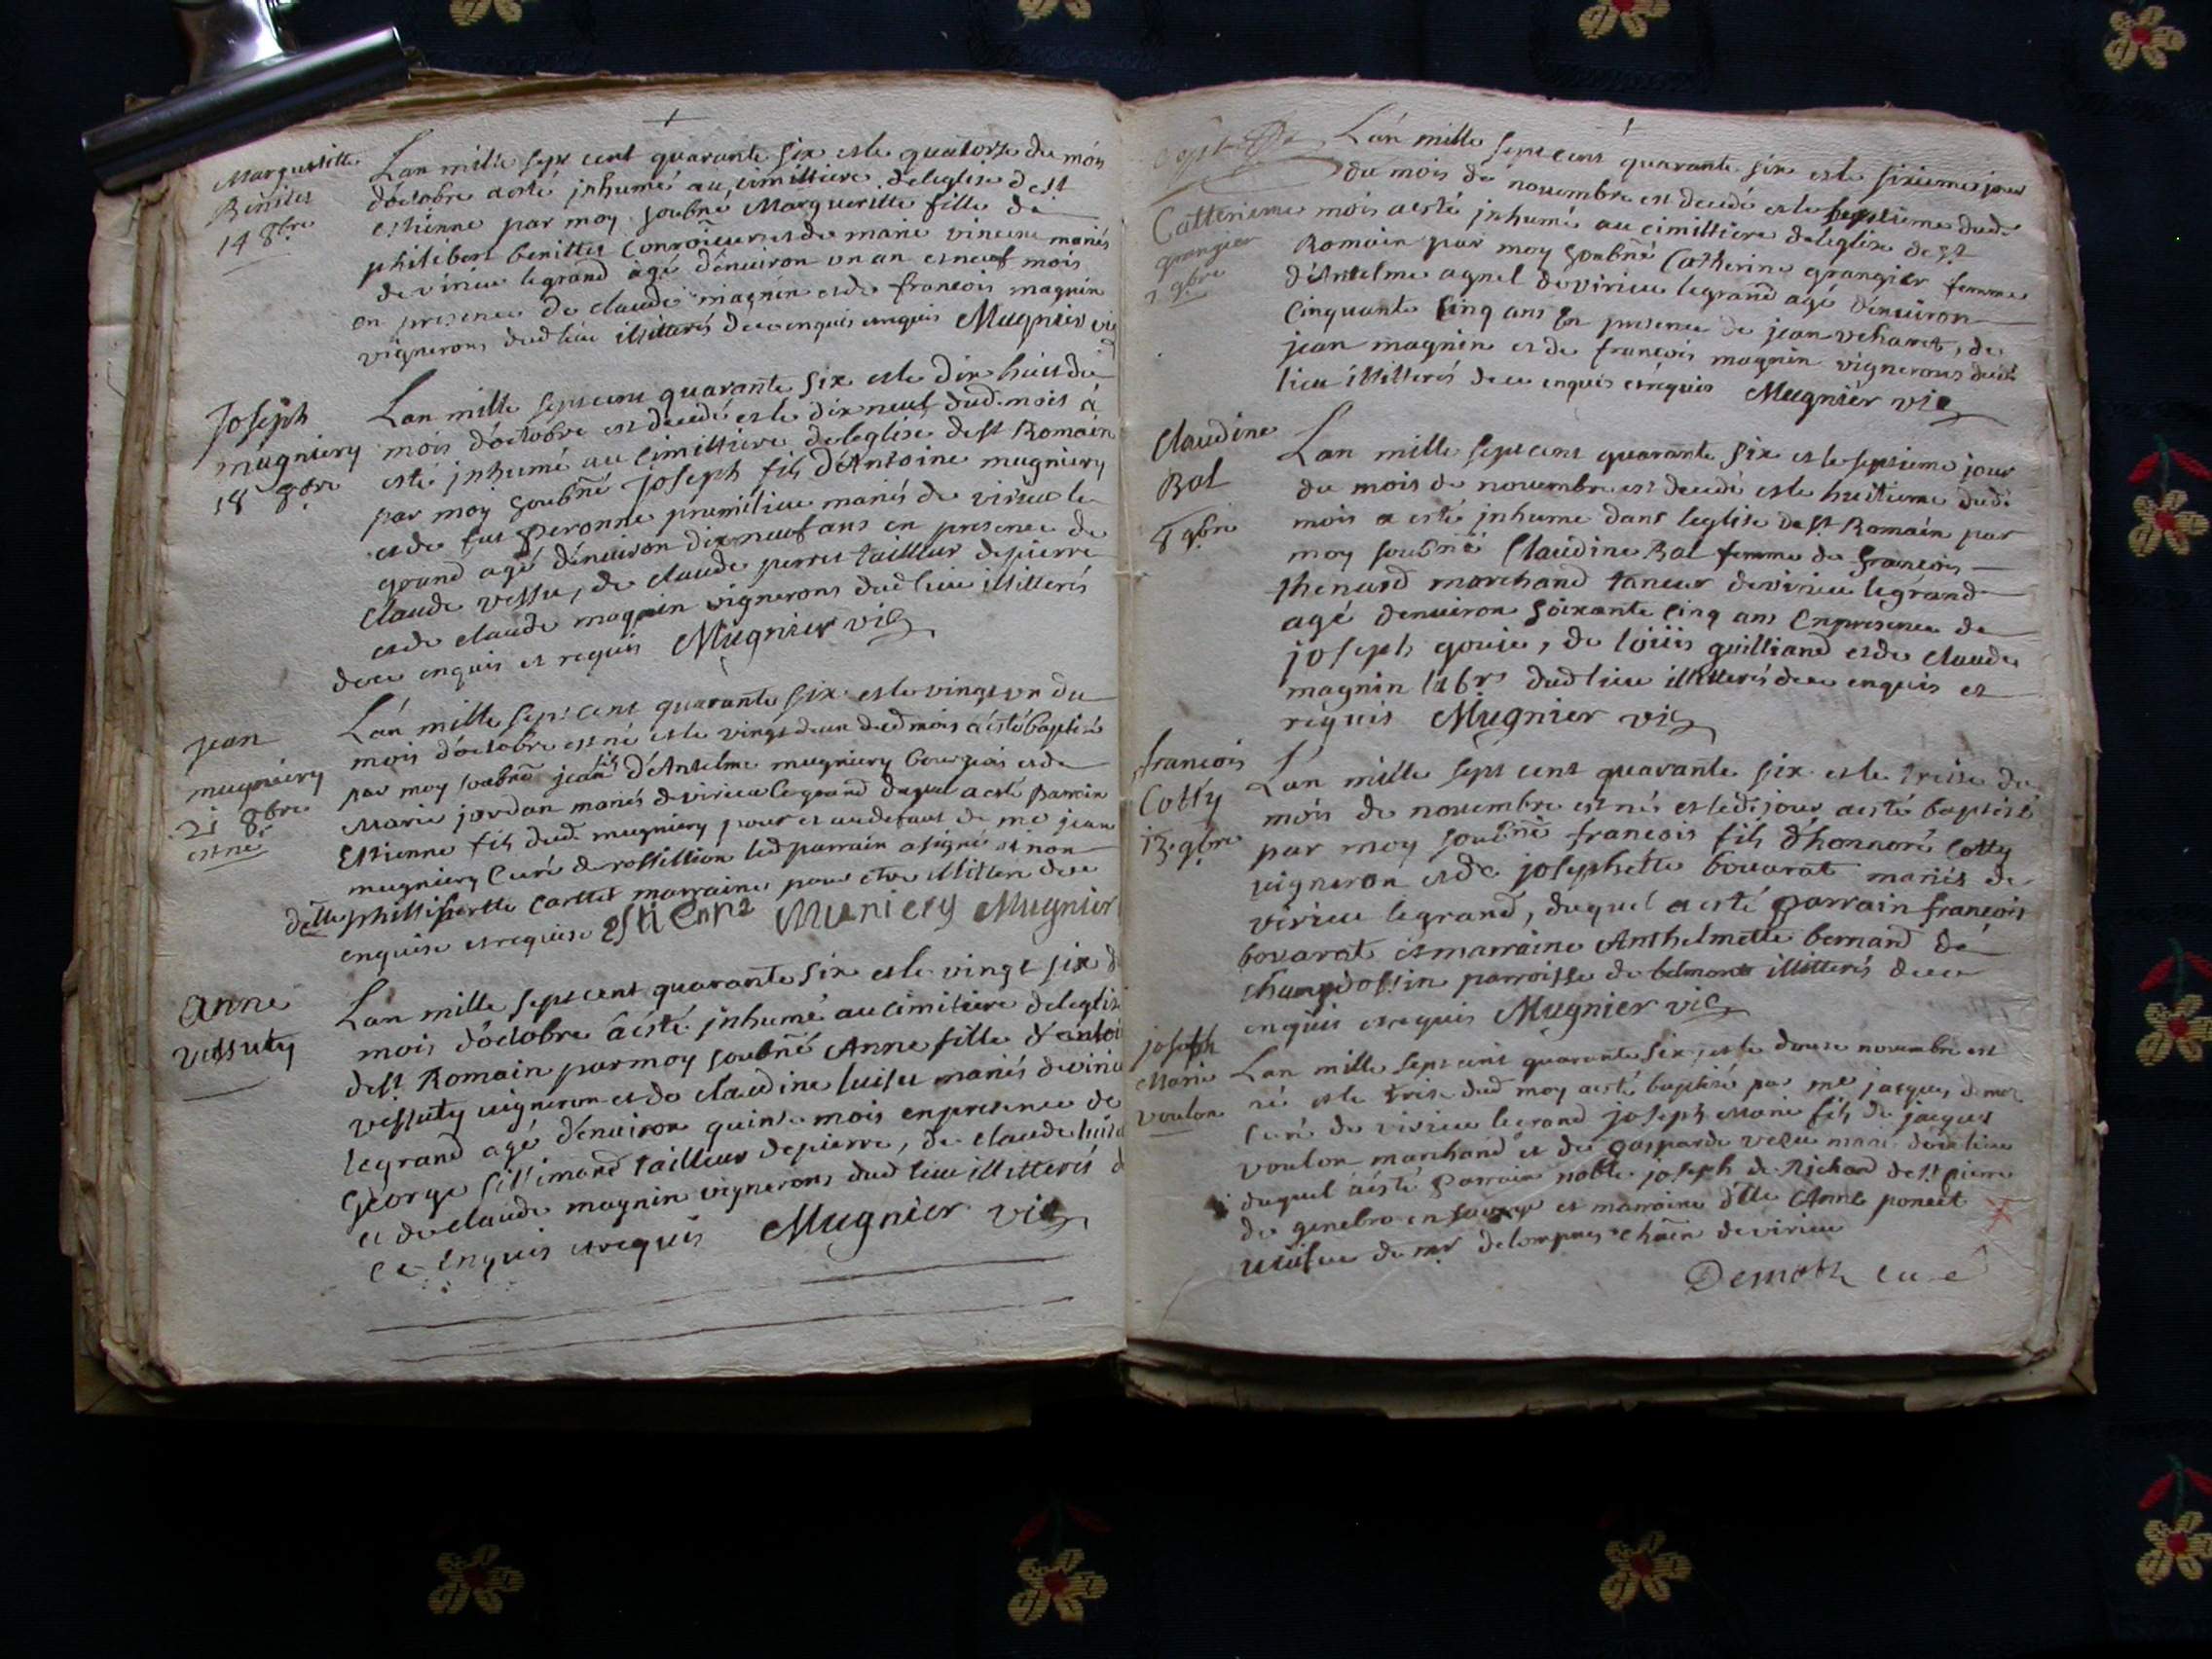 Margueritte
Benitte
14 8bre
Lan mille sept cent quarante six et le quatorse du mois
d'octobre a esté jnhumé au cimittiere de leglise de st
estienne par moy soubné Marguerite fille de
philibert benitte Conroieur et de marie vincent mariés
de virieu le grand âgé d'enuiron un an et neuf mois
en presence de claude magnin et de francois magnin
vignerons dud lieu illitterés de ce enquis et requis Mugnier vic
Joseph
mugniery
18 8bre
Lan mille sept cent quarante six et le dix huit du
mois d'octobre est decedé et le dix neuf dud mois à
esté jnhumé au cimittiere de leglise de st Romain
par moy soubné joseph fils d'Antoine mugniery
et de fut peronne premilieu mariés de virieu le
grand agé d'enuiron dix neuf ans en presence de
claude vessu, de claude perret tailleur de pierre
et de claude magnin vignerons dud lieu illitterés
de ce enquis et requis Mugnier vic
Jean
mugniery
21 8bre
est né
Lan mille sept cent quarante six et le vingt un du
mois d'octobre est né et le vingt deux dud mois a esté baptisé
par moy soubné jean fils d'Antelme mugniery bourgeois et de
Marie jordan mariés de virieu le grand duquel a esté parrain
Estienne fils dud. mugniery pour et au defaut de me jean
mugniery Curé de rossillion led parrain a signé et non
delle phillipertte carttet marraine pour etre illitteré de ce
enquise et requise estienne Muniery Mugnier
Anne
vessuty
Lan mille sept cent quarante six et le vingt six d
mois d'octobre a esté jnhumé au cimitiere de leglise
de st Romain par moy soubné Anne fille d'antoi
vessuty vigneron et de claudine luiset mariés de virieu
le grand agé d'enuiron quinse mois en presence de
George sillimand tailleur de pierre, de claude luiset
et de claude magnin vignerons dud lieu illitterés d
ce enquis et requis Mugnier vic
Catterinne
grangier
7 9bre
Lan mille sept cent quarante six et le sixieme jour
du mois de nouembre est decedé et le septieme dud.
mois a esté jnhumé au cimittiere de leglise de st
Romain par moy soubné Catherine grangier femme
d'Antelme agnel de virieu le grand agé d'enuiron
cinquante cinq ans En presence de jean veharet, de
jean magnin et de francois magnin vignerons dud
lieu illitterés de ce enquis et requis Mugnier vic
Claudine
Bal
8 9bre
Lan mille sept cent quarante six et le septieme jour
du mois de nouembre est decedé et le huitieme dud.
mois a esté jnhume dans leglise de st Romain par
moy soubné Claudine Bal femme de francois
thenard marchand taneur de virieu le grand
agé d'enuiron soixante cinq ans En presence de
joseph goujie, de loüis guilliand et de claude
magnin labrs dud lieu illitterés de ce enquis et
requis Mugnier vic
francois
Cotty
13 9bre
Lan mille sept cent quarante six et le treise du
mois de nouembre est né et led. jour a esté baptisé
par moy soubné francois fils d'honnoré Cotty
vigneron et de josephette bovarat mariés de
virieu le grand, duquel a esté parrain francois
bovarat et marraine Anthelmette bernard de
champdossin parroisse de belmont illitterés de ce
enquis et requis Mugnier vic
joseph
Marie
voulon
Lan mille sept cent quarante six, et le douse novembre est
né et le treise dud moy a esté baptisé par me jacques demoz
curé de virieu le grand joseph Marie fils de jacques
voulon marchand et de gasparde vezu mariés dud lieu
duquel a esté parrain noble joseph de Richard de st pierre
de genebro en savoye et marraine dlle Anne poncet
veüfue de mr delompnes chãin de virieu
Demoth curé